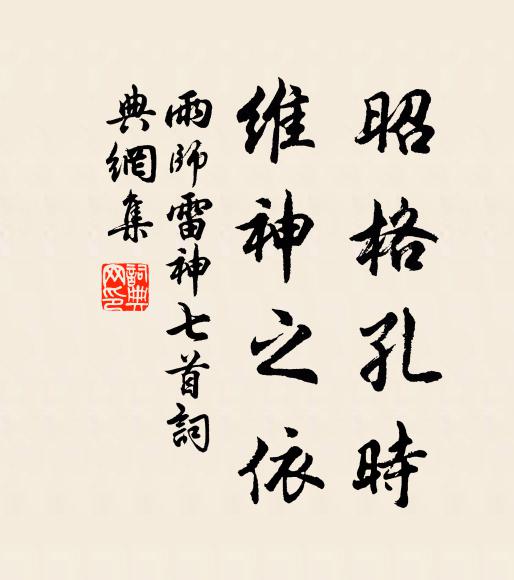 昭格孔時
維神之依
雨師雷神七首詞
典網集
詞典
网印